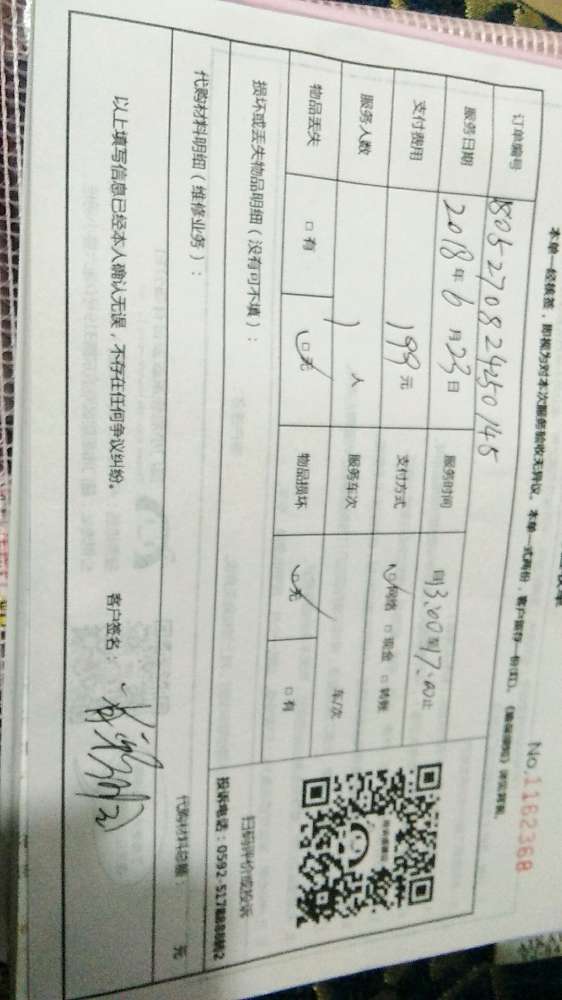 No.1162368
本单一经核签，即视为对本次服务验收无异议。本单一式两份，客户留存一份
订单编号 180527082425014S
服务日期 2018年6月23日 服务时间 13:00至17:00止
支付费用 199元 支付方式 ☑网络 □现金 □转账
服务人数 1人 服务车次 车/次
物品丢失 □有 ☑无 物品损坏 ☑无 □有
损坏或丢失物品明细（没有可不填）：
扫码评价或投诉
投诉电话：0592-5178888转2
代购材料明细（维修业务）：
代购材料总额： 元
以上填写信息已经本人确认无误，不存在任何争议纠纷。 客户签名：